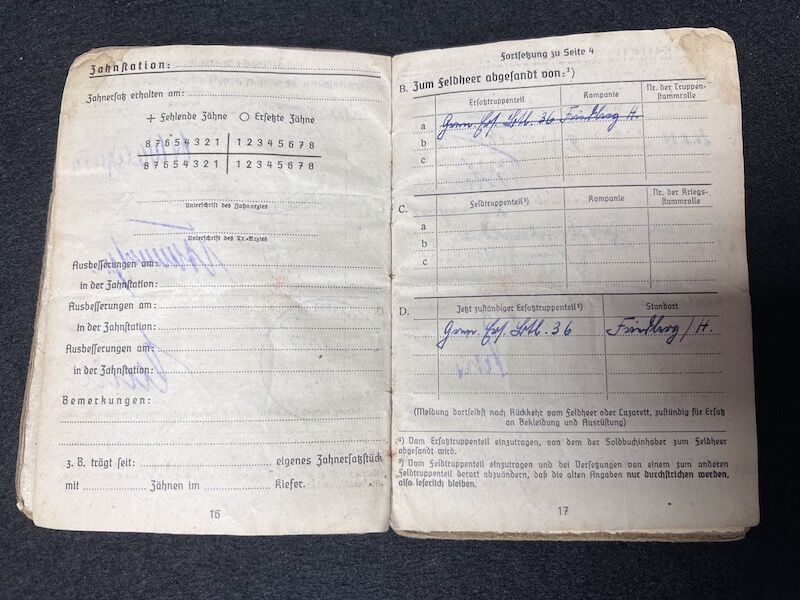 Zahnstation:
Zahnersatz erhalten am:
+ Fehlende Zähne ○ Ersetzte Zähne
8 7 6 5 4 3 2 1 | 1 2 3 4 5 6 7 8
8 7 6 5 4 3 2 1 | 1 2 3 4 5 6 7 8
Unterschrift des Zahnarztes
Unterschrift des Tr.-Arztes
Ausbesserungen am:
in der Zahnstation:
Ausbesserungen am:
in der Zahnstation:
Ausbesserungen am:
in der Zahnstation:
Bemerkungen:
z. B. trägt seit: eigenes Zahnersatzstück
mit Zähnen im Kiefer.
16
Fortsetzung zu Seite 4
B. Zum Feldheer abgesandt von:¹)
Ersatztruppenteil Kompanie Nr. der Truppen-
stammrolle
a Gren. Ers. Btl. 36 Friedberg H.
b
c
C. Feldtruppenteil²) Kompanie Nr. der Kriegs-
stammrolle
a
b
c
D. Jetzt zuständiger Ersatztruppenteil²) Standort
Gren. Ers. Btl. 36 Friedberg / H.
(Meldung dortselbst nach Rückkehr vom Feldheer oder Lazarett, zuständig für Ersatz
an Bekleidung und Ausrüstung)
¹) Vom Ersatztruppenteil einzutragen, von dem der Soldbuchinhaber zum Feldheer
abgesandt wird.
²) Vom Feldtruppenteil einzutragen und bei Versetzungen von einem zum anderen
Feldtruppenteil derart abzuändern, daß die alten Angaben nur durchstrichen werden,
also leserlich bleiben.
17